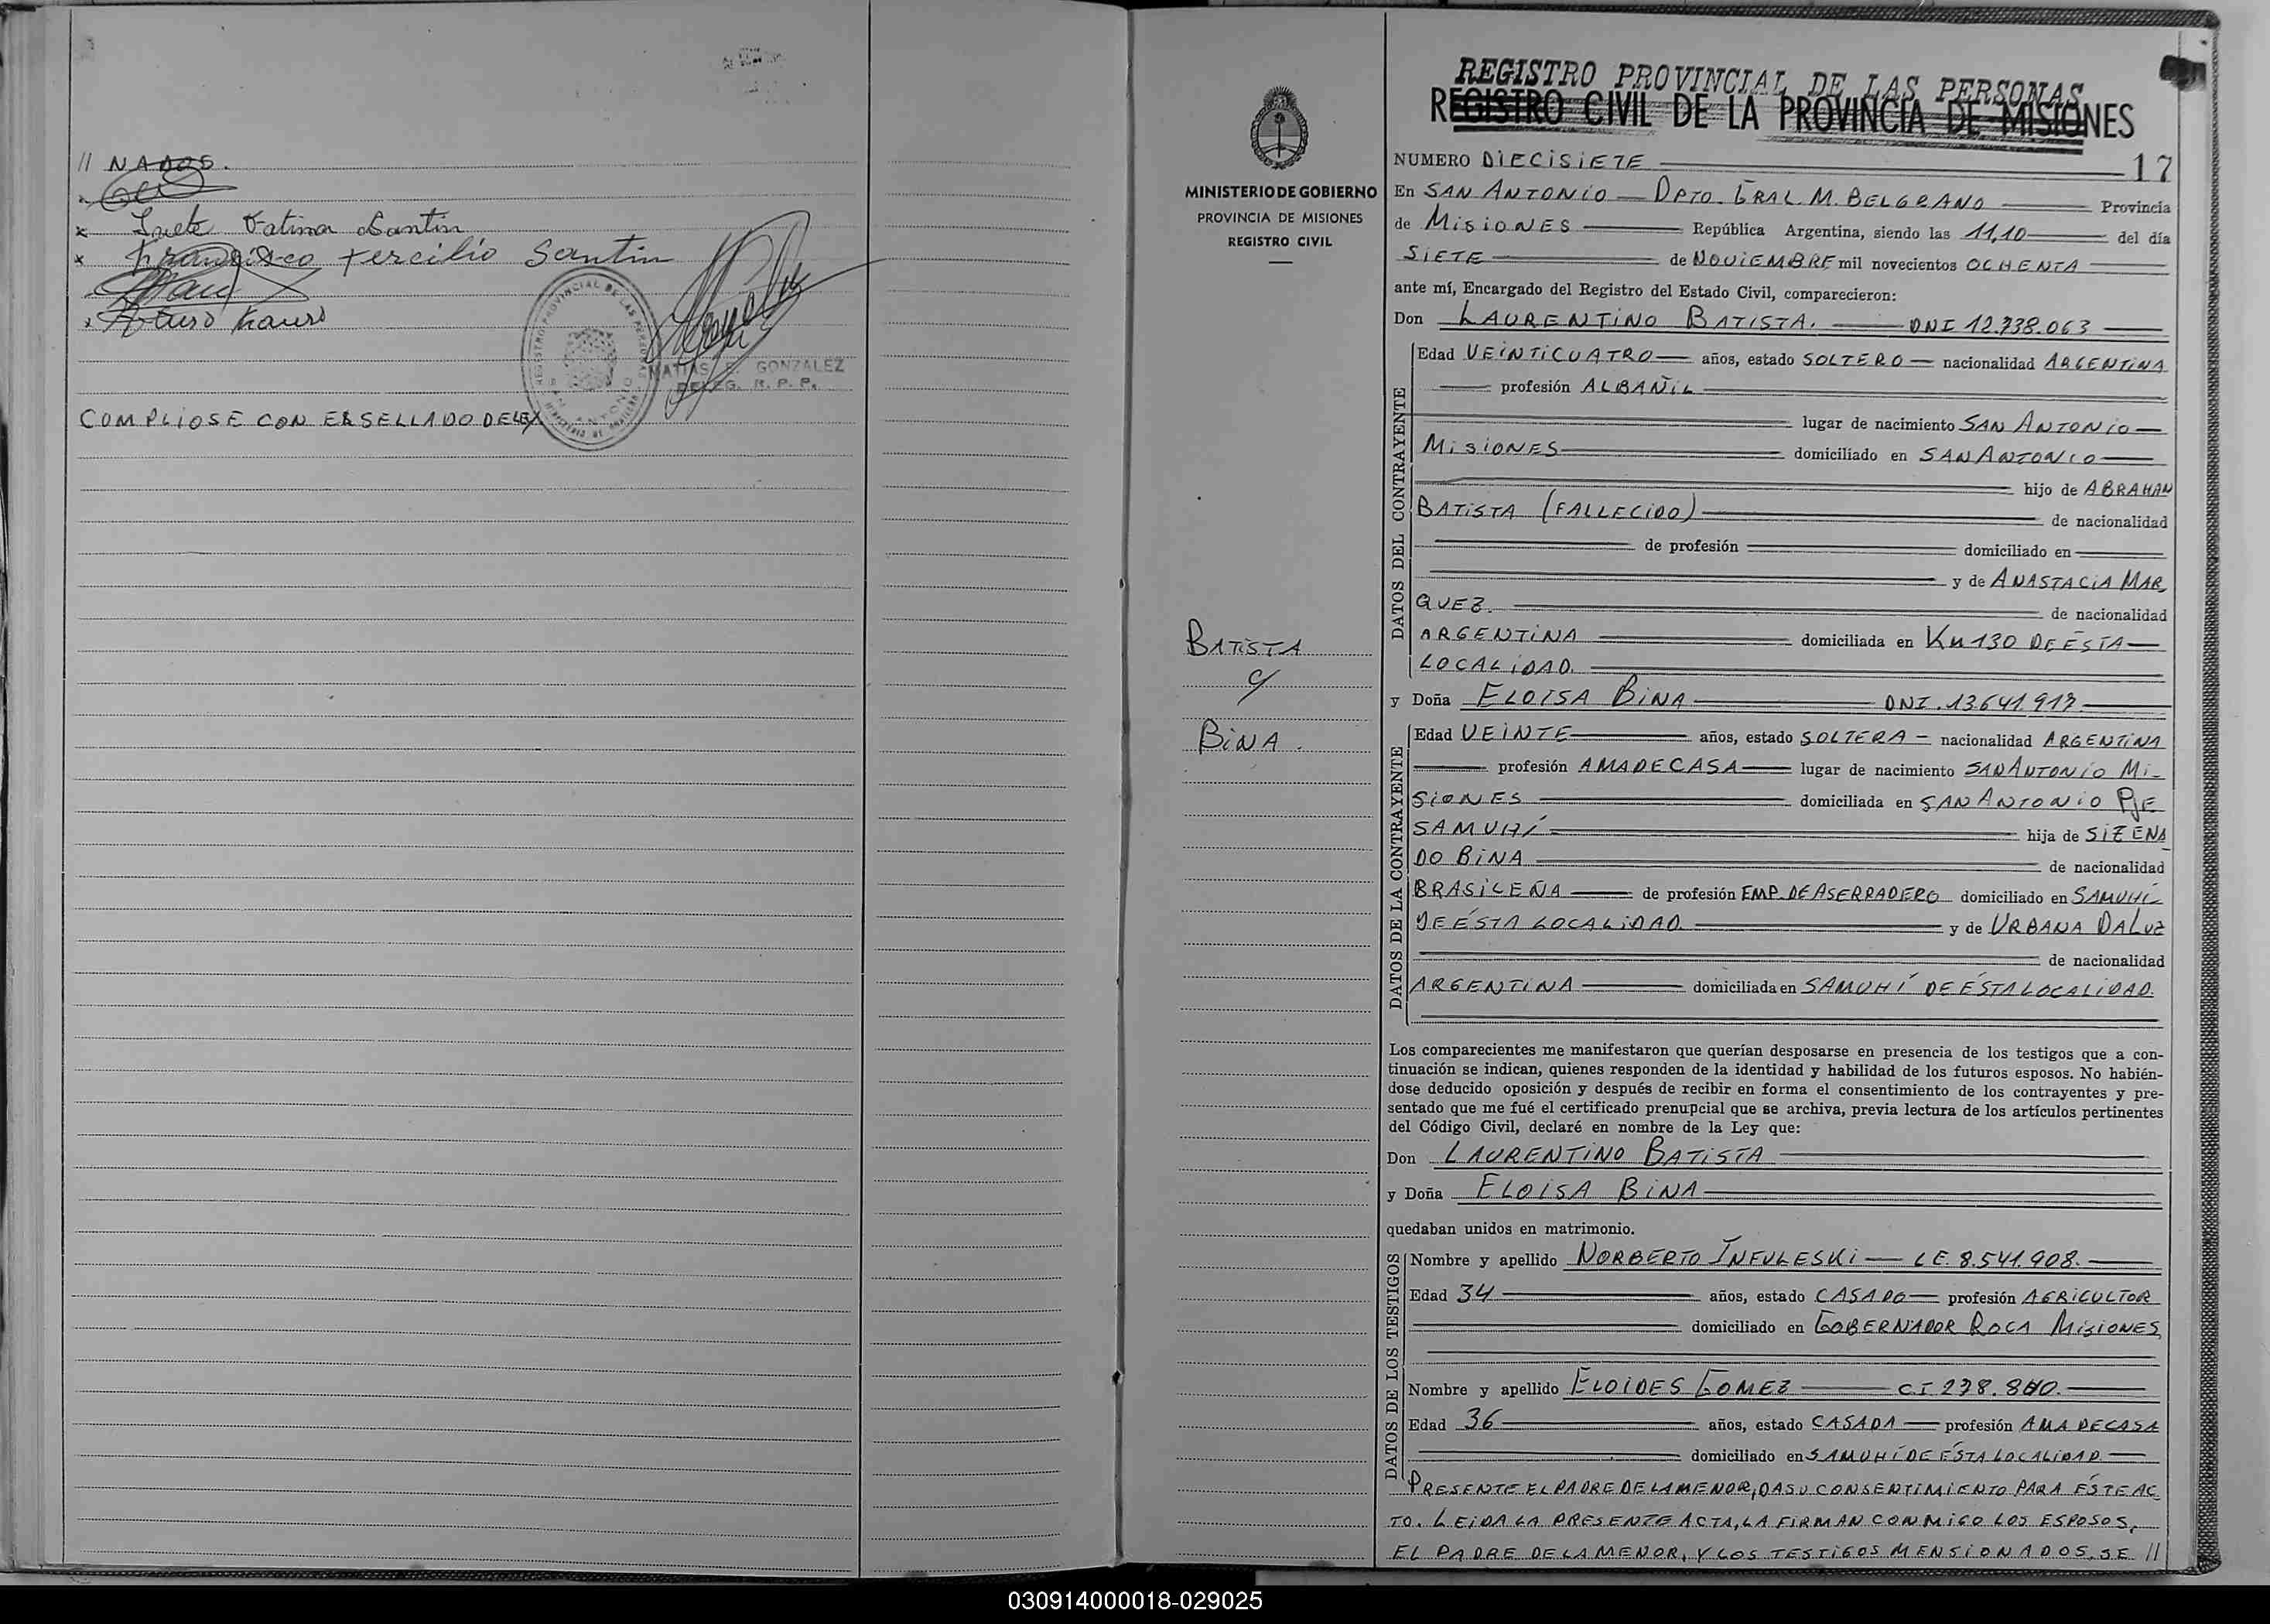 // NADOS.
x Inete Fatima Santin
x Francisco tercilio Santin
x Arturo Kauss
REGISTRO PROVINCIAL DE LAS PERSONAS
SAN ANTONIO
MATIAS E. GONZALEZ
DELEG. R. P. P.
COMPLIOSE CON EL SELLADO DE LEY
MINISTERIO DE GOBIERNO
PROVINCIA DE MISIONES
REGISTRO CIVIL
BATISTA
c/
BINA.
REGISTRO PROVINCIAL DE LAS PERSONAS
REGISTRO CIVIL DE LA PROVINCIA DE MISIONES
NUMERO DIECISIETE 17
En SAN ANTONIO - DPTO. GRAL. M. BELGRANO Provincia
de MISIONES República Argentina, siendo las 11,10 del día
SIETE de NOVIEMBRE mil novecientos OCHENTA
ante mí, Encargado del Registro del Estado Civil, comparecieron:
Don LAURENTINO BATISTA. DNI 12.738.063
DATOS DEL CONTRAYENTE
Edad VEINTICUATRO años, estado SOLTERO nacionalidad ARGENTINA
profesión ALBAÑIL
lugar de nacimiento SAN ANTONIO
MISIONES domiciliado en SAN ANTONIO
hijo de ABRAHAN
BATISTA (FALLECIDO) de nacionalidad
de profesión domiciliado en
y de ANASTACIA MAR
QUEZ. de nacionalidad
ARGENTINA domiciliada en KM 130 DE ÉSTA
LOCALIDAD.
y Doña ELOISA BINA DNI. 13.641.917
DATOS DE LA CONTRAYENTE
Edad VEINTE años, estado SOLTERA nacionalidad ARGENTINA
profesión AMA DE CASA lugar de nacimiento SAN ANTONIO MI-
SIONES domiciliada en SAN ANTONIO PJE
SAMUHÍ hija de SIZENA
DO BINA de nacionalidad
BRASILEÑA de profesión EMP. DE ASERRADERO domiciliado en SAMUHÍ
DE ÉSTA LOCALIDAD. y de URBANA DA LUZ
de nacionalidad
ARGENTINA domiciliada en SAMUHÍ DE ÉSTA LOCALIDAD.
Los comparecientes me manifestaron que querían desposarse en presencia de los testigos que a con-
tinuación se indican, quienes responden de la identidad y habilidad de los futuros esposos. No habién-
dose deducido oposición y después de recibir en forma el consentimiento de los contrayentes y pre-
sentado que me fué el certificado prenupcial que se archiva, previa lectura de los artículos pertinentes
del Código Civil, declaré en nombre de la Ley que:
Don LAURENTINO BATISTA
y Doña ELOISA BINA
quedaban unidos en matrimonio.
DATOS DE LOS TESTIGOS
Nombre y apellido NORBERTO INFULESKI L E. 8.541.908.
Edad 34 años, estado CASADO profesión AGRICULTOR
domiciliado en GOBERNADOR ROCA MISIONES
Nombre y apellido ELOIDES GOMEZ C I 278.8
Edad 36 años, estado CASADA profesión AMA DE CASA
domiciliado en SAMUHÍ DE ÉSTA LOCALIDAD
PRESENTE EL PADRE DE LA MENOR, DA SU CONSENTIMIENTO PARA ÉSTE AC
TO. LEIDA LA PRESENTE ACTA, LA FIRMAN CONMIGO LOS ESPOSOS,
EL PADRE DE LA MENOR, Y LOS TESTIGOS MENSIONADOS. SE //
030914000018-029025